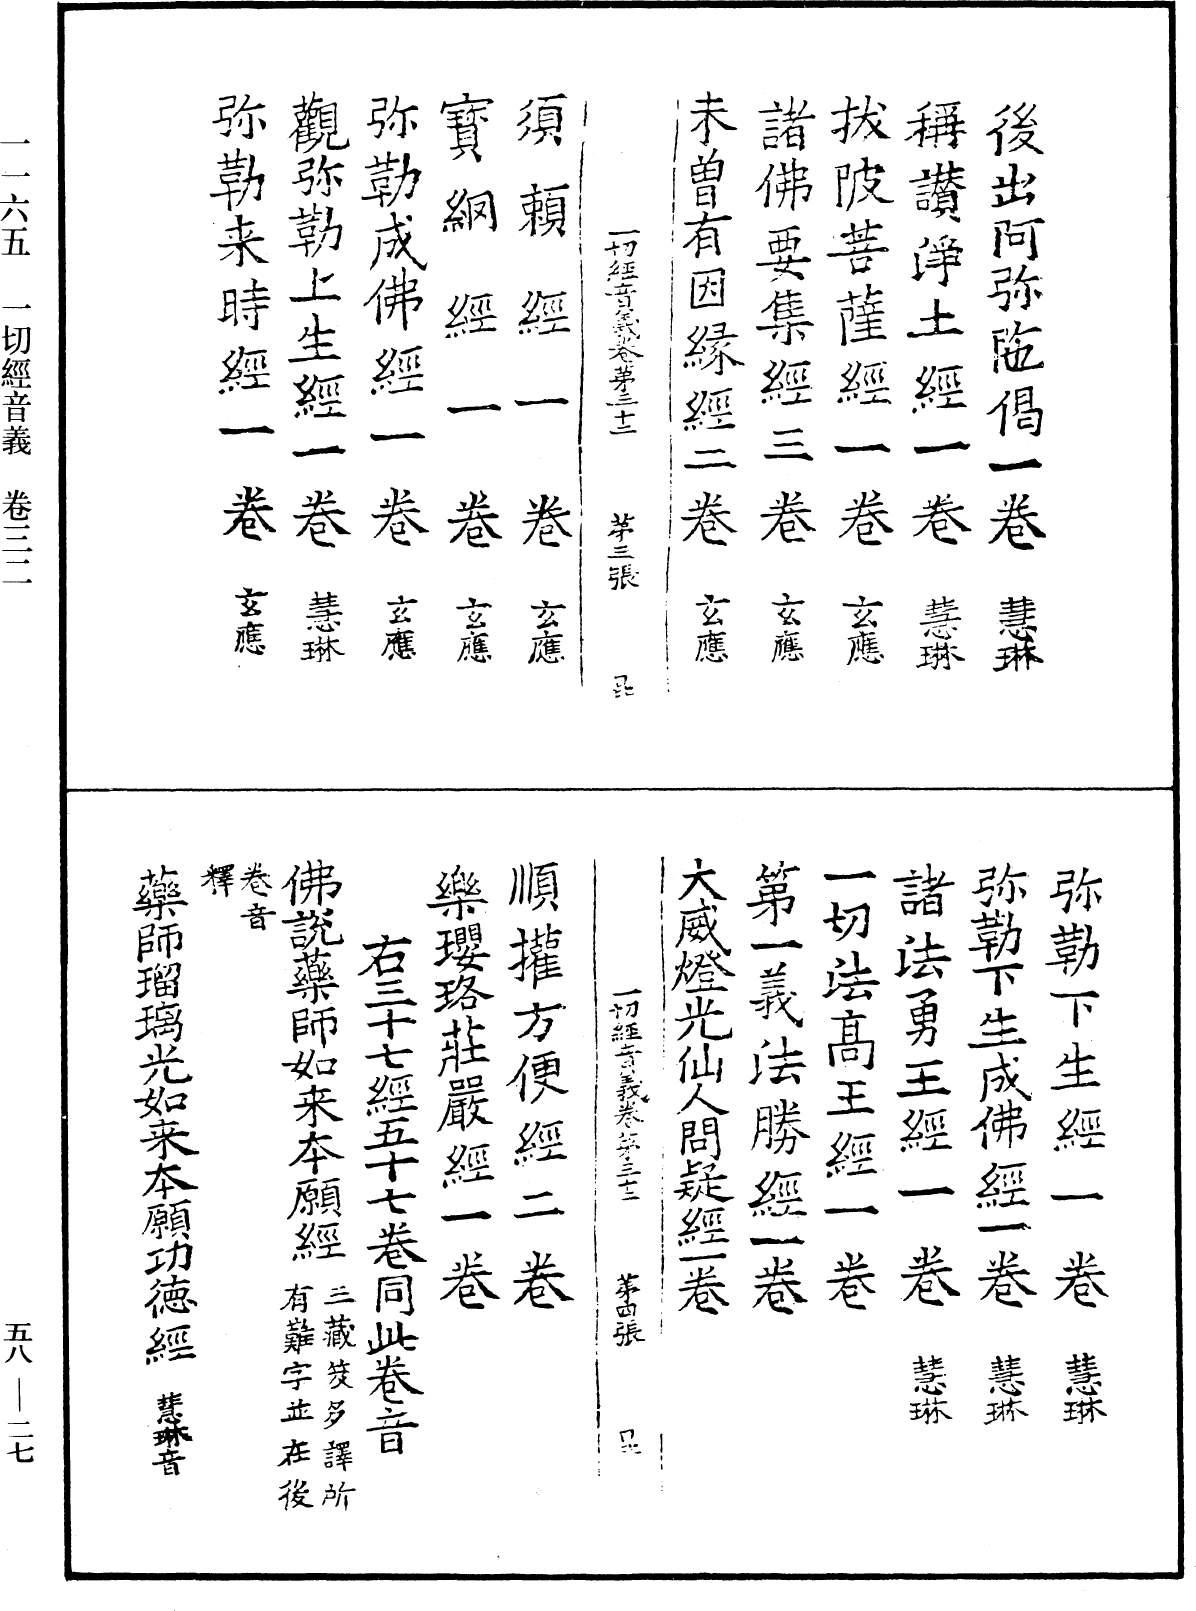 後出阿弥陁偈一卷 慧琳
稱讃淨土經一卷 慧琳
拔陂菩薩經一卷 玄應
諸佛要集經三卷 玄應
未曽有因縁經二卷 玄應
一切經音義卷第三十二 第三張
須頼經一卷 玄應
寳網經一卷 玄應
弥勒成佛經一卷 玄應
觀弥勒上生經一卷 慧琳
弥勒来時經一卷 玄應
弥勒下生經一卷 慧琳
弥勒下生成佛經一卷 慧琳
諸法勇王經一卷 慧琳
一切法髙王經一卷
第一義法勝經一卷
大威燈光仙人問疑經一卷
一切經音義卷第三十二 第四張
順權方便經二卷
樂瓔珞莊嚴經一卷
右三十七經五十七卷同此卷音
佛說藥師如来本願經 三藏笈多譯所有難字並在後
卷音
釋
藥師瑠璃光如来本願功徳經 慧琳音
一一六五 一切經音義 卷三二
五八—二七